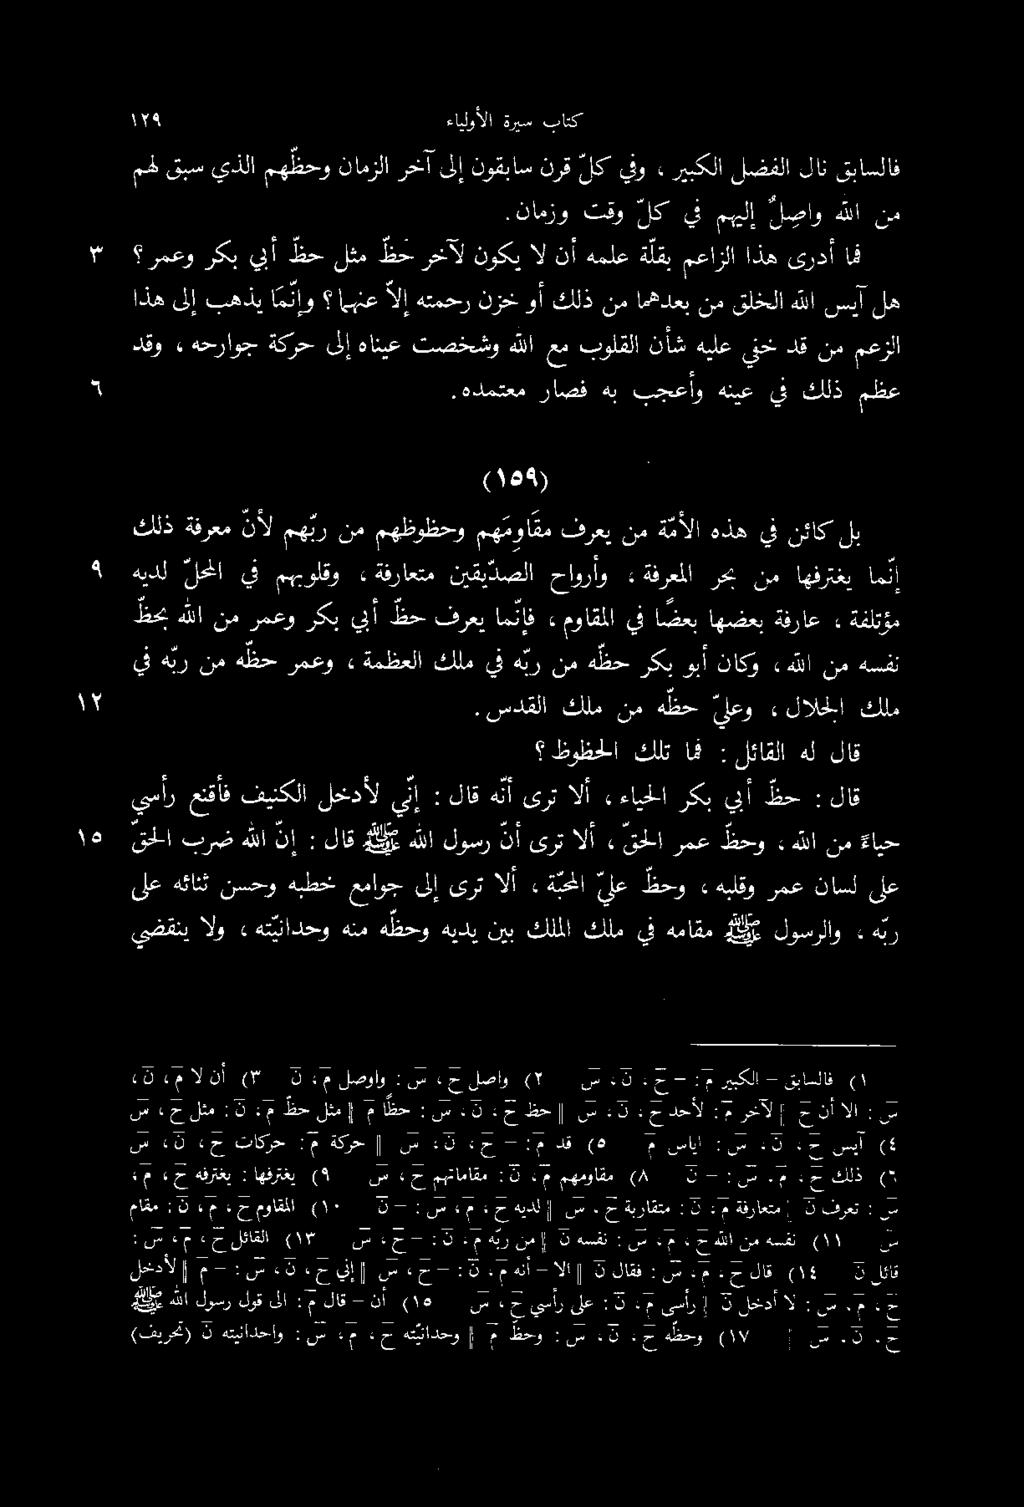 كتاب سيرة الأولياء ١٢٩
فالسابق نال الفضل الكبير ، وفي كلّ قرن سابقون إلى آخر الزمان وحظّهم الذي سبق لهم
من الله واصِلٌ إليهم في كلّ وقت وزمان.
فما أدرى هذا الزاعم بقلّة علمه أن لا يكون لآخر حَظّ مثل حظّ أبي بكر وعمر؟ ٣
هل آيس الله الخلق من بعدهما من ذلك أو خزن رحمته إلّا عنهما؟ وإنّما يذهب إلى هذا
الزعم من قد خفي عليه شأن القلوب مع الله وشخصت عيناه إلى حركة جوارحه ، وقد
عظم ذلك في عينه وأعجب به فصار معتمده. ٦
(١٥٩)
بل كائن في هذه الأمّة من يعرف مقَاوِمَهم وحظوظهم من ربّهم لأنّ معرفة ذلك
إنّما يغترفها من بحر المعرفة ، وأرواح الصدّيقين متعارفة ، وقلوبهم في المحلّ لديه ٩
مؤتلفة ، عارفة بعضها بعضًا في المقاوم ، فإنّما يعرف حظّ أبي بكر وعمر من الله بحظّ
نفسه من الله ، وكان أبو بكر حظّه من ربّه في ملك العظمة ، وعمر حظّه من ربّه في
ملك الجلال ، وعليّ حظّه من ملك القدس. ١٢
قال له القائل : فما تلك الحظوظ ؟
قال : حظّ أبي بكر الحياء ، ألا ترى أنّه قال : إنّي لأدخل الكنيف فأقنع رأسي
حياءً من الله ، وحظّ عمر الحقّ ، ألا ترى أنّ رسول الله ﷺ قال : إنّ الله ضرب الحقّ ١٥
على لسان عمر وقلبه ، وحظّ عليّ المحبّة ، ألا ترى إلى جوامع خطبه وحسن ثنائه على
ربّه ، والرسول ﷺ مقامه في ملك الملك بين يديه وحظّه منه وحدانيّته ، ولا ينقضي
١) فالسابق – الكبير م : – ح ، ن ، س ٢) واصل ح ، س : واوصل م ، ن ٣) أن لا م ، ن ،
س : الا أن ح || لآخر م : لأحد ح ، ن ، س || حظ ح ، ن ، س : حظّا م || مثل حظّ م ، ن : مثل ح ، س
٤) آيس ح ، ن ، س : اياس م ٥) قد م : – ح ، ن ، س || حركة م : حركات ح ، ن ، س
٦) ذلك ح ، م ، س : – ن ٨) مقاومهم م ، ن : مقاماتهم ح ، س ٩) يغترفها : يغترفه ح ، م ،
س : تعرف ن || متعارفة م ، ن : متقاربة ح ، س || لديه ح ، م ، س : – ن ١٠) المقاوم ح ، م ، ن : مقام
س ١١) نفسه من الله ح ، م ، س : نفسه ن || من ربّه م ، ن : – ح ، س ١٣) القائل ح ، م ، س :
قائل ن ١٤) قال ح ، م ، س : فقال ن || الا – أنه م ، ن : – ح ، س || إني ح ، ن ، س : – م || لأدخل
ح ، م ، س : لا أدخل ن || رأسي م ، ن : على رأسي ح ، س ١٥) أن – قال م : الى قول رسول الله ﷺ
ح ، ن ، س || ١٧) وحظّه ح ، ن ، س : وحظ م || وحدانيّته ح ، م ، س : واحدانيته ن (تحريف)